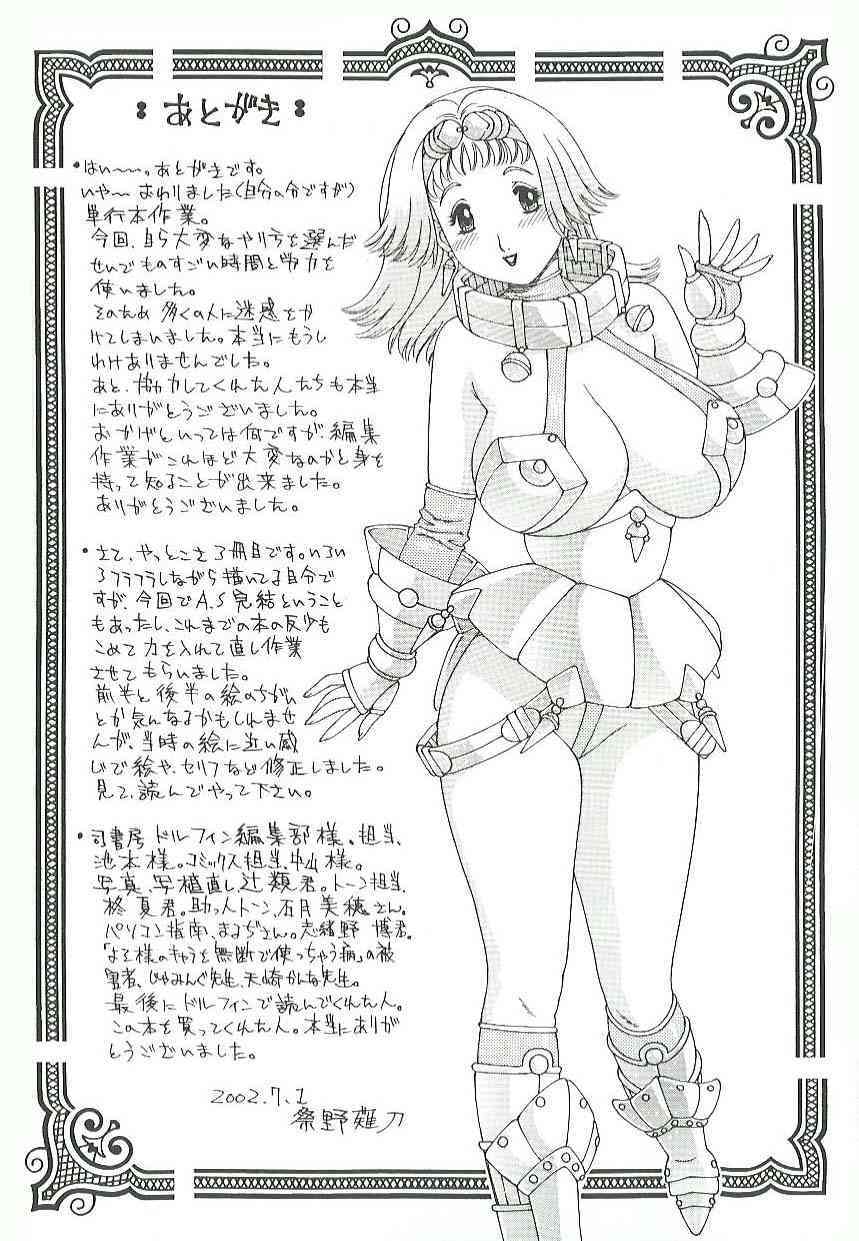 ：あとがき：
・はい〜〜。あとがきです。
いや〜 おわりました（自分の分ですが）
単行本作業。
今回、自ら大変なやり方を選んだ
せいでものすごい時間と労力を
使いました。
そのため 多くの人に迷惑をか
けてしまいました。本当にもうし
わけありませんでした。
あと、協力してくれた人たちも本当
にありがとうございました。
おかげといっては何ですが、編集
作業がこれほど大変なのかと身を
持って知ることが出来ました。
ありがとうございました。
・さて、やっとこさ3冊目です。いろい
ろフラフラしながら描いてる自分で
すが、今回でA.S完結ということ
もあったし、これまでの本の反省も
こめて力を入れて直し作業
させてもらいました。
前半と後半の絵のちがい
とか気んなるかもしれませ
んが、当時の絵に近い感
じで絵や、セリフなど修正しました。
見て、読んでやって下さい。
・司書房 ドルフィン編集部様。担当、
池本様。コミックス担当、中山様。
写真、写植直し、辻 類君。トーン担当、
柊 夏君。助っ人トーン、石月 美穂さん。
パソコン指南、まるぢさん。志緒野 博君。
「よそ様のキャラを無断で使っちゃう病」の被
害者、じゃみんぐ先生、天崎かんな先生。
最後にドルフィンで読んでくれた人。
この本を買ってくれた人。本当にありが
とうございました。
2002.7.1
祭野薙刀